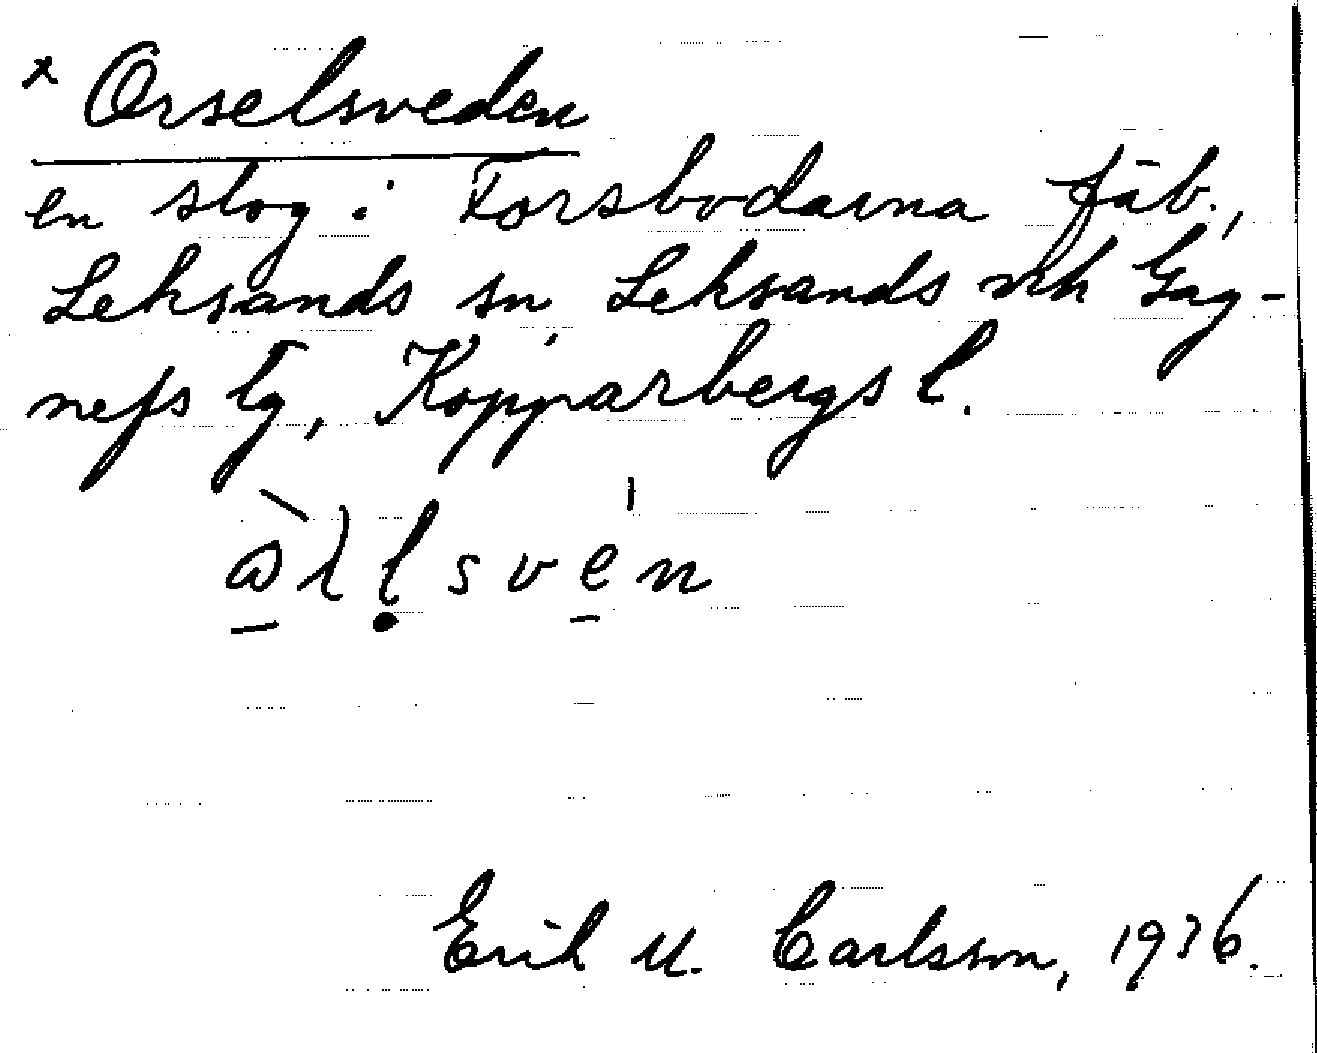 x Orselsveden
en slog i Forsbodarna fäb.,
Leksands sn, Leksands och Gag-
nefs tg, Kopparbergs l.
Erik U. Carlsson, 1936.